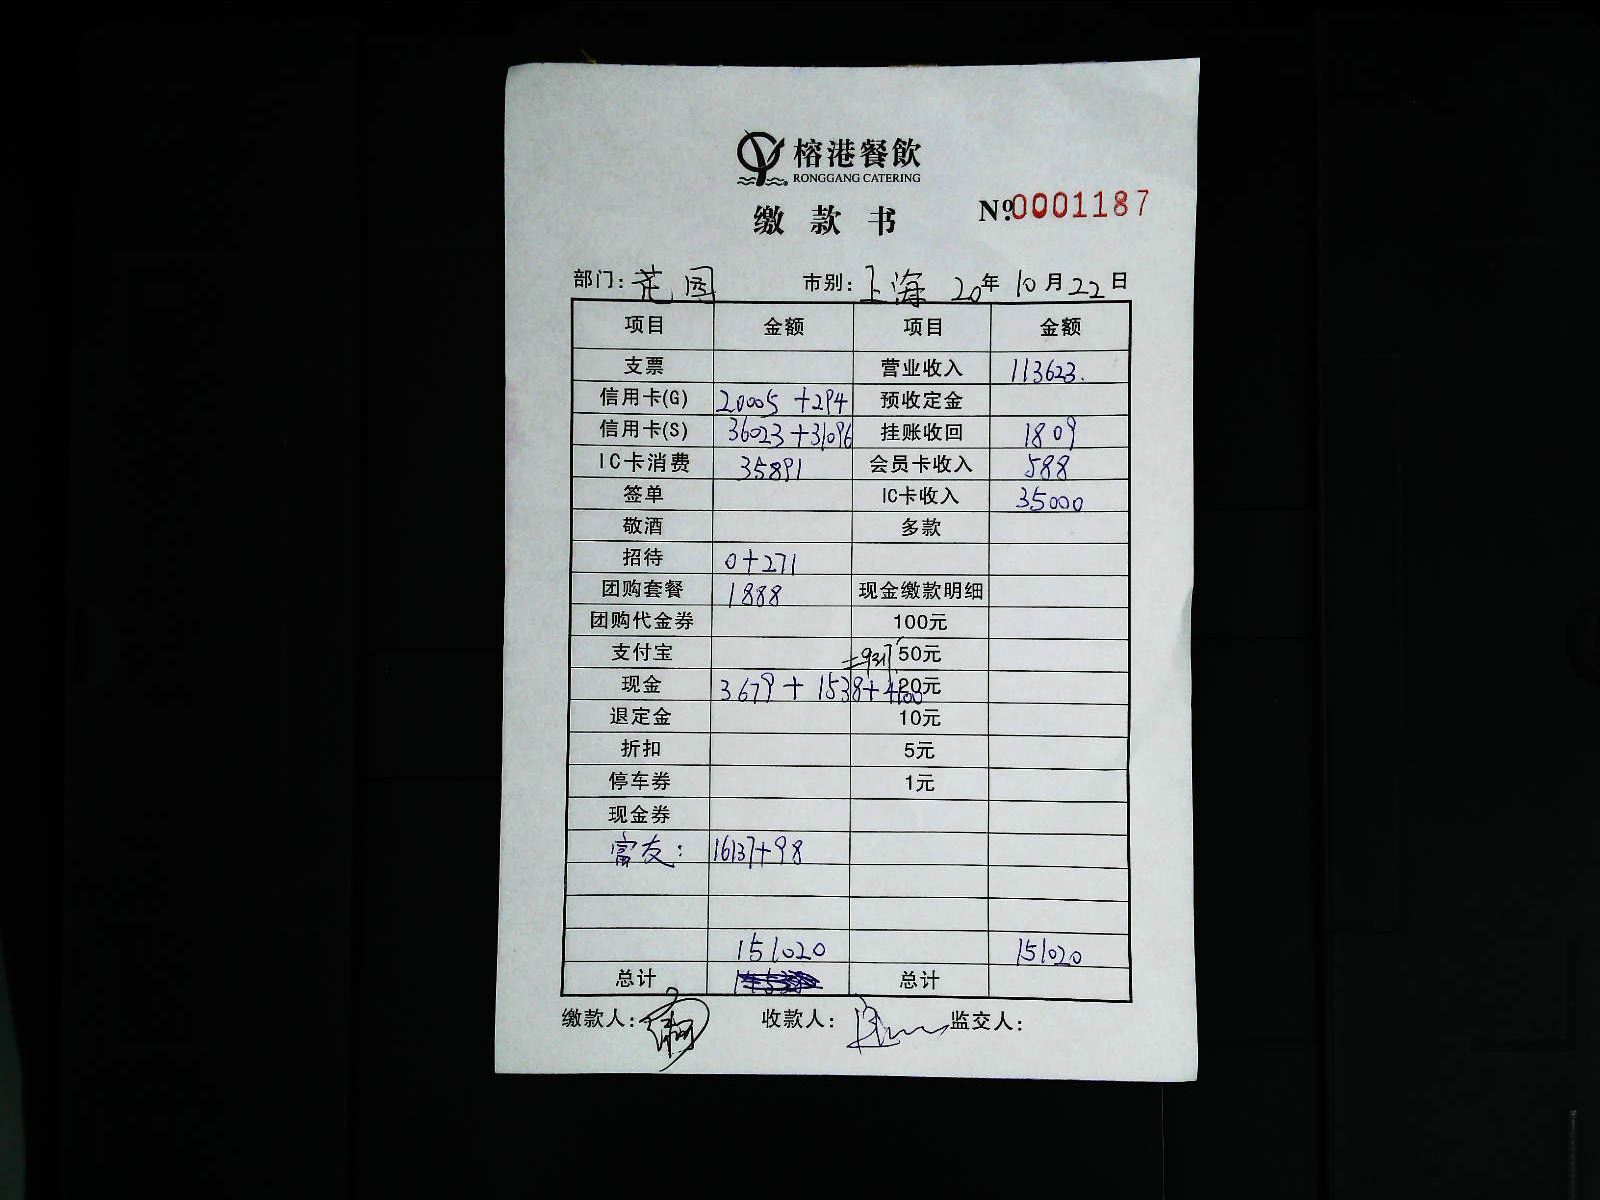 榕港餐飲
RONGGANG CATERING
缴款书 Nº:0001187
部门: 花园 市别: 上海 20年 10月 22日
项目 金额 项目 金额
支票 营业收入 113623.
信用卡(G) 20005 +294 预收定金
信用卡(S) 36023 +31096 挂账收回 1809
IC卡消费 35891 会员卡收入 588
签单 IC卡收入 35000
敬酒 多款
招待 0+271
团购套餐 1888 现金缴款明细
团购代金券 100元
支付宝 =9317 50元
现金 3679 + 1538+4100 20元
退定金 10元
折扣 5元
停车券 1元
现金券
富友: 16137+98
151020 151020
总计 总计
缴款人: 收款人: 监交人: